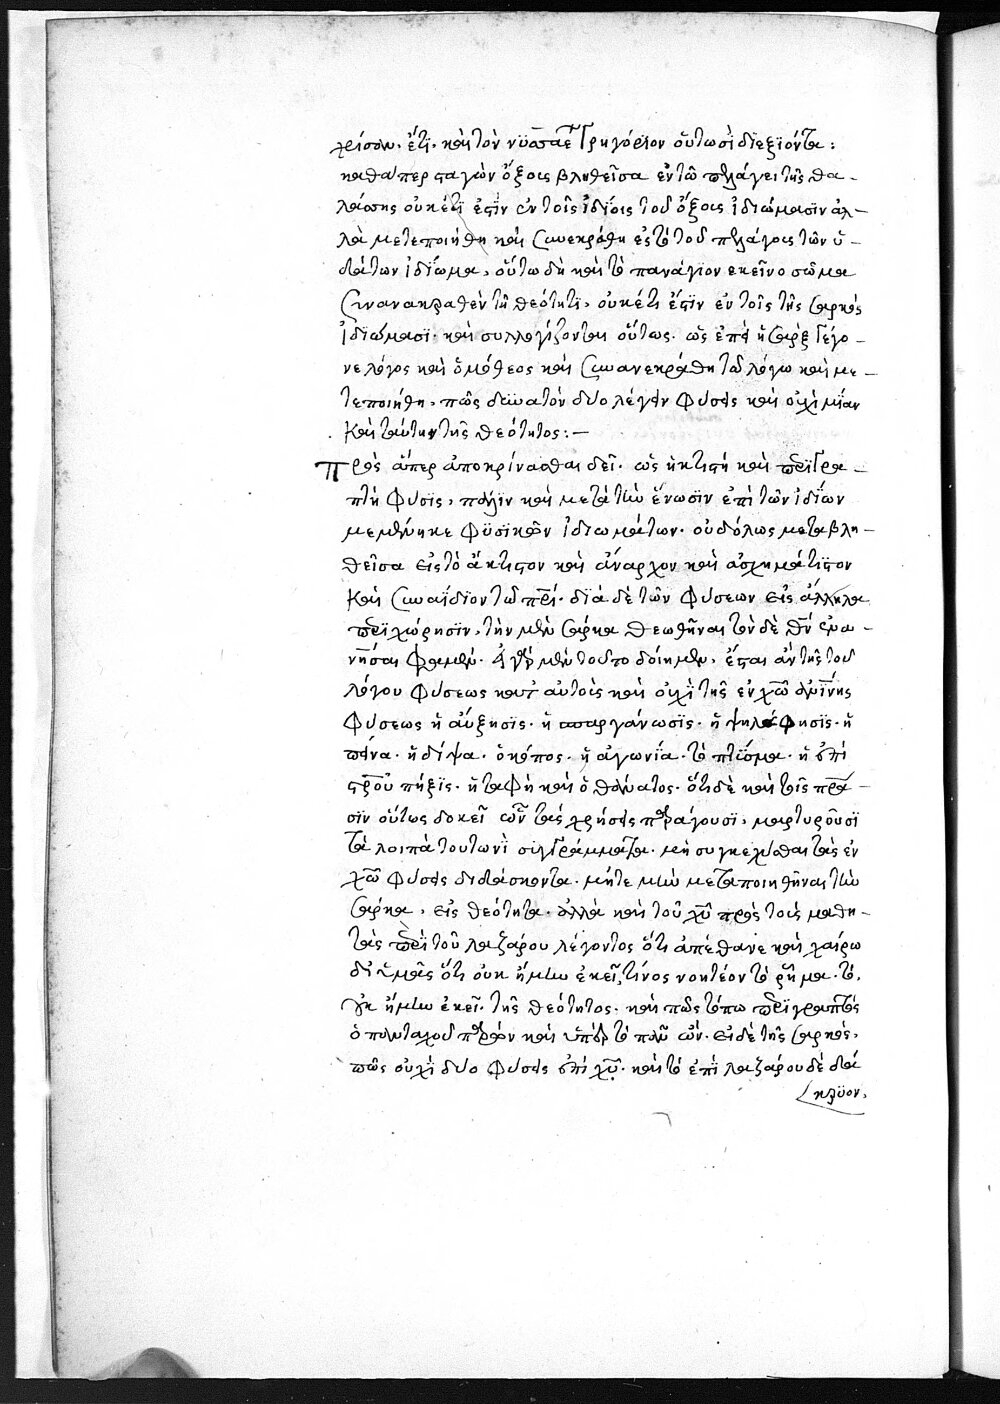 χρίσαν· ἔτι· καὶ τὸν νύσσης Γρηγόριον οὕτωσὶ διεξιόντα:
καθάπερ σταγὼν ὄξους βληθεῖσα ἐν τῶ πελάγει τῆς θα-
λάσσης οὐκέτι ἐστὶν ἐν τοῖς ἰδίοις τοῦ ὄξους ἰδιώμασιν ἀλ-
λὰ μετεποιήθη καὶ συνεκράθη ἐς τὸ τοῦ πελάγους τῶν ὑ-
δάτων ἰδίωμα, οὕτω δὴ καὶ τὸ πανάγιον ἐκεῖνο σῶμα
συνανακραθὲν τῆ θεότητι, οὐκέτι ἐστὶν ἐν τοῖς τῆς σαρκὸς
ἰδιώμασι· καὶ συλλογίζονται οὕτως· ὡς ἐπεὶ ἡ σὰρξ γέγο-
νε λόγος καὶ ὁμόθεος καὶ συνανεκράθη τῶ λόγω καὶ με-
τεποιήθη, πῶς δυνατὸν δυο λέγειν φύσεις καὶ οὐχὶ μίαν
καὶ ταύτην τῆς θεότητος:-
Πρὸς ἅπερ ἀποκρίνασθαι δεῖ· ὡς ἡ κτιστὴ καὶ περιγρα-
πτὴ φύσις, πάλιν καὶ μετὰ τὴν ἕνωσιν ἐπὶ τῶν ἰδίων
μεμένηκε φυσικῶν ἰδιωμάτων· οὐδόλως μεταβλη-
θεῖσα εἰς τὸ ἄκτιστον καὶ ἄναρχον καὶ ἀσχημάτιστον
καὶ συναΐδιον τῶ πρί· διὰ δὲ τῶν φύσεων εἰς ἄλληλα
περιχώρησιν, τὴν μὲν σάρκα θεωθῆναι τὸν δὲ θν ἐνα-
νῆσαι φαμέν· εἰ γὰρ μὲν τοῦτο δοίημεν, ἔσται ἂν τῆς τοῦ
λόγου φύσεως κατ αὐτοὺς καὶ οὐχὶ τῆς ἐν χῶ ἀνίνης
φύσεως ἡ αὔξησις· ἡ σπαργάνωσις· ἡ ψηλάφησις· ἡ
πεῖνα· ἡ δίψα· ὁ κόπος· ἡ ἀγωνία· τὸ πτύσμα· ἡ ἐπὶ
στροῦ πῆξις· ἡ ταφὴ καὶ ὁ θάνατος· ὅτι δὲ καὶ τοῖς πρά-
σιν οὕτως δοκεῖ ὧν τὰς χρήσεις παράγουσι, μαρτυροῦσι
τὰ λοιπὰ τουτωνὶ συγγράμματα· μὴ συγκεχύσθαι τὰς ἐν
χῶ φύσεις διδάσκοντα· μήτε μὴν μεταποιηθῆναι τὴν
σάρκα, εἰς θεότητα· ἀλλὰ καὶ τοῦ χῦ πρὸς τοὺς μαθη-
τὰς περὶ τοῦ λαζάρου λέγοντος ὅτι ἀπέθανε καὶ χαίρω
δι ὑμᾶς ὅτι οὐκ ἤμην ἐκεῖ, τίνος νοητέον τὸ ῥῆμα· τὸ,
οὐκ ἤμην ἐκεῖ· τῆς θεότητος· καὶ πῶς τόπω περιγραπτὸς
ὁ πανταχοῦ παρὼν καὶ ὑπὲρ τὸ πᾶν ὤν· εἰ δὲ τῆς σαρκὸς,
πῶς οὐχὶ δυο φύσεις ἐπὶ χῦ· καὶ τὸ ἐπὶ λαζάρου δὲ δά
κρυον,